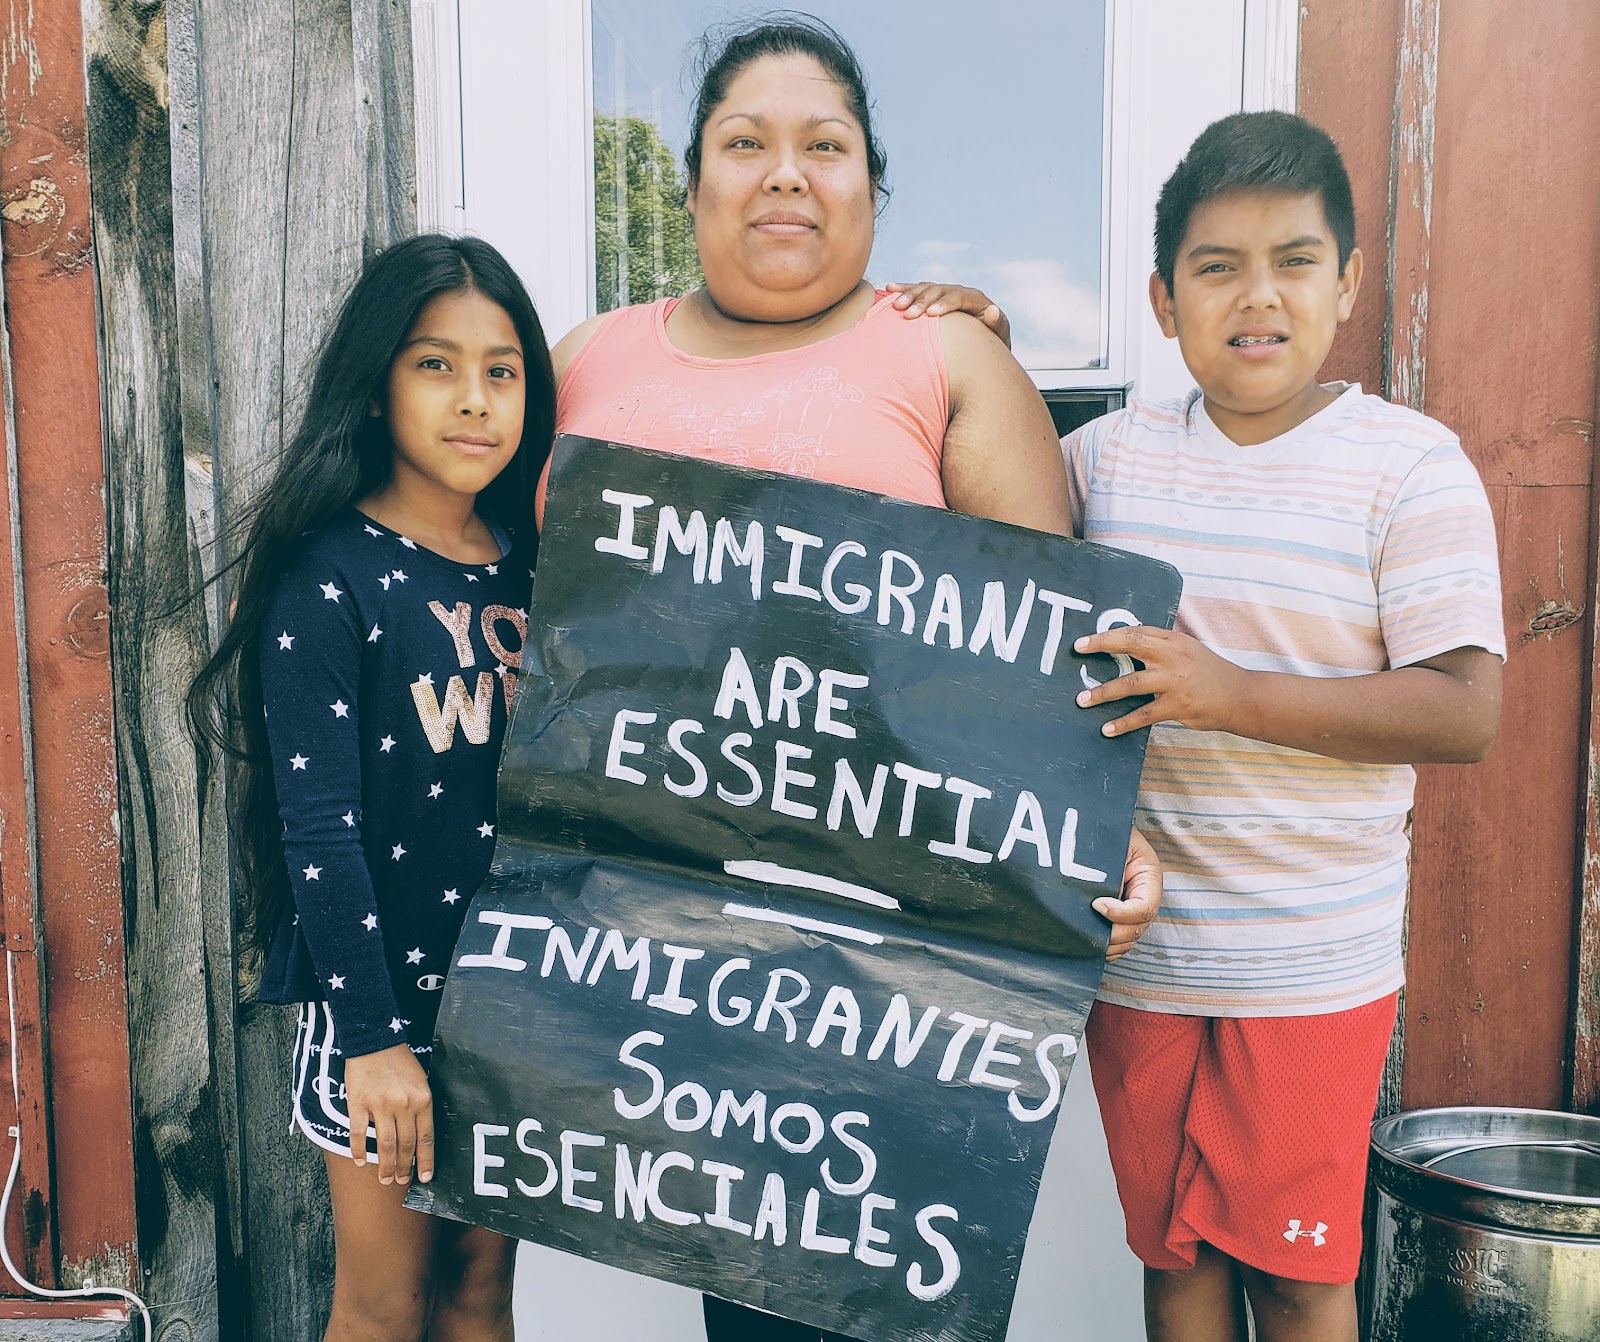 IMMIGRANTS
ARE
ESSENTIAL
INMIGRANTES
SOMOS
ESENCIALES
YO
Champion